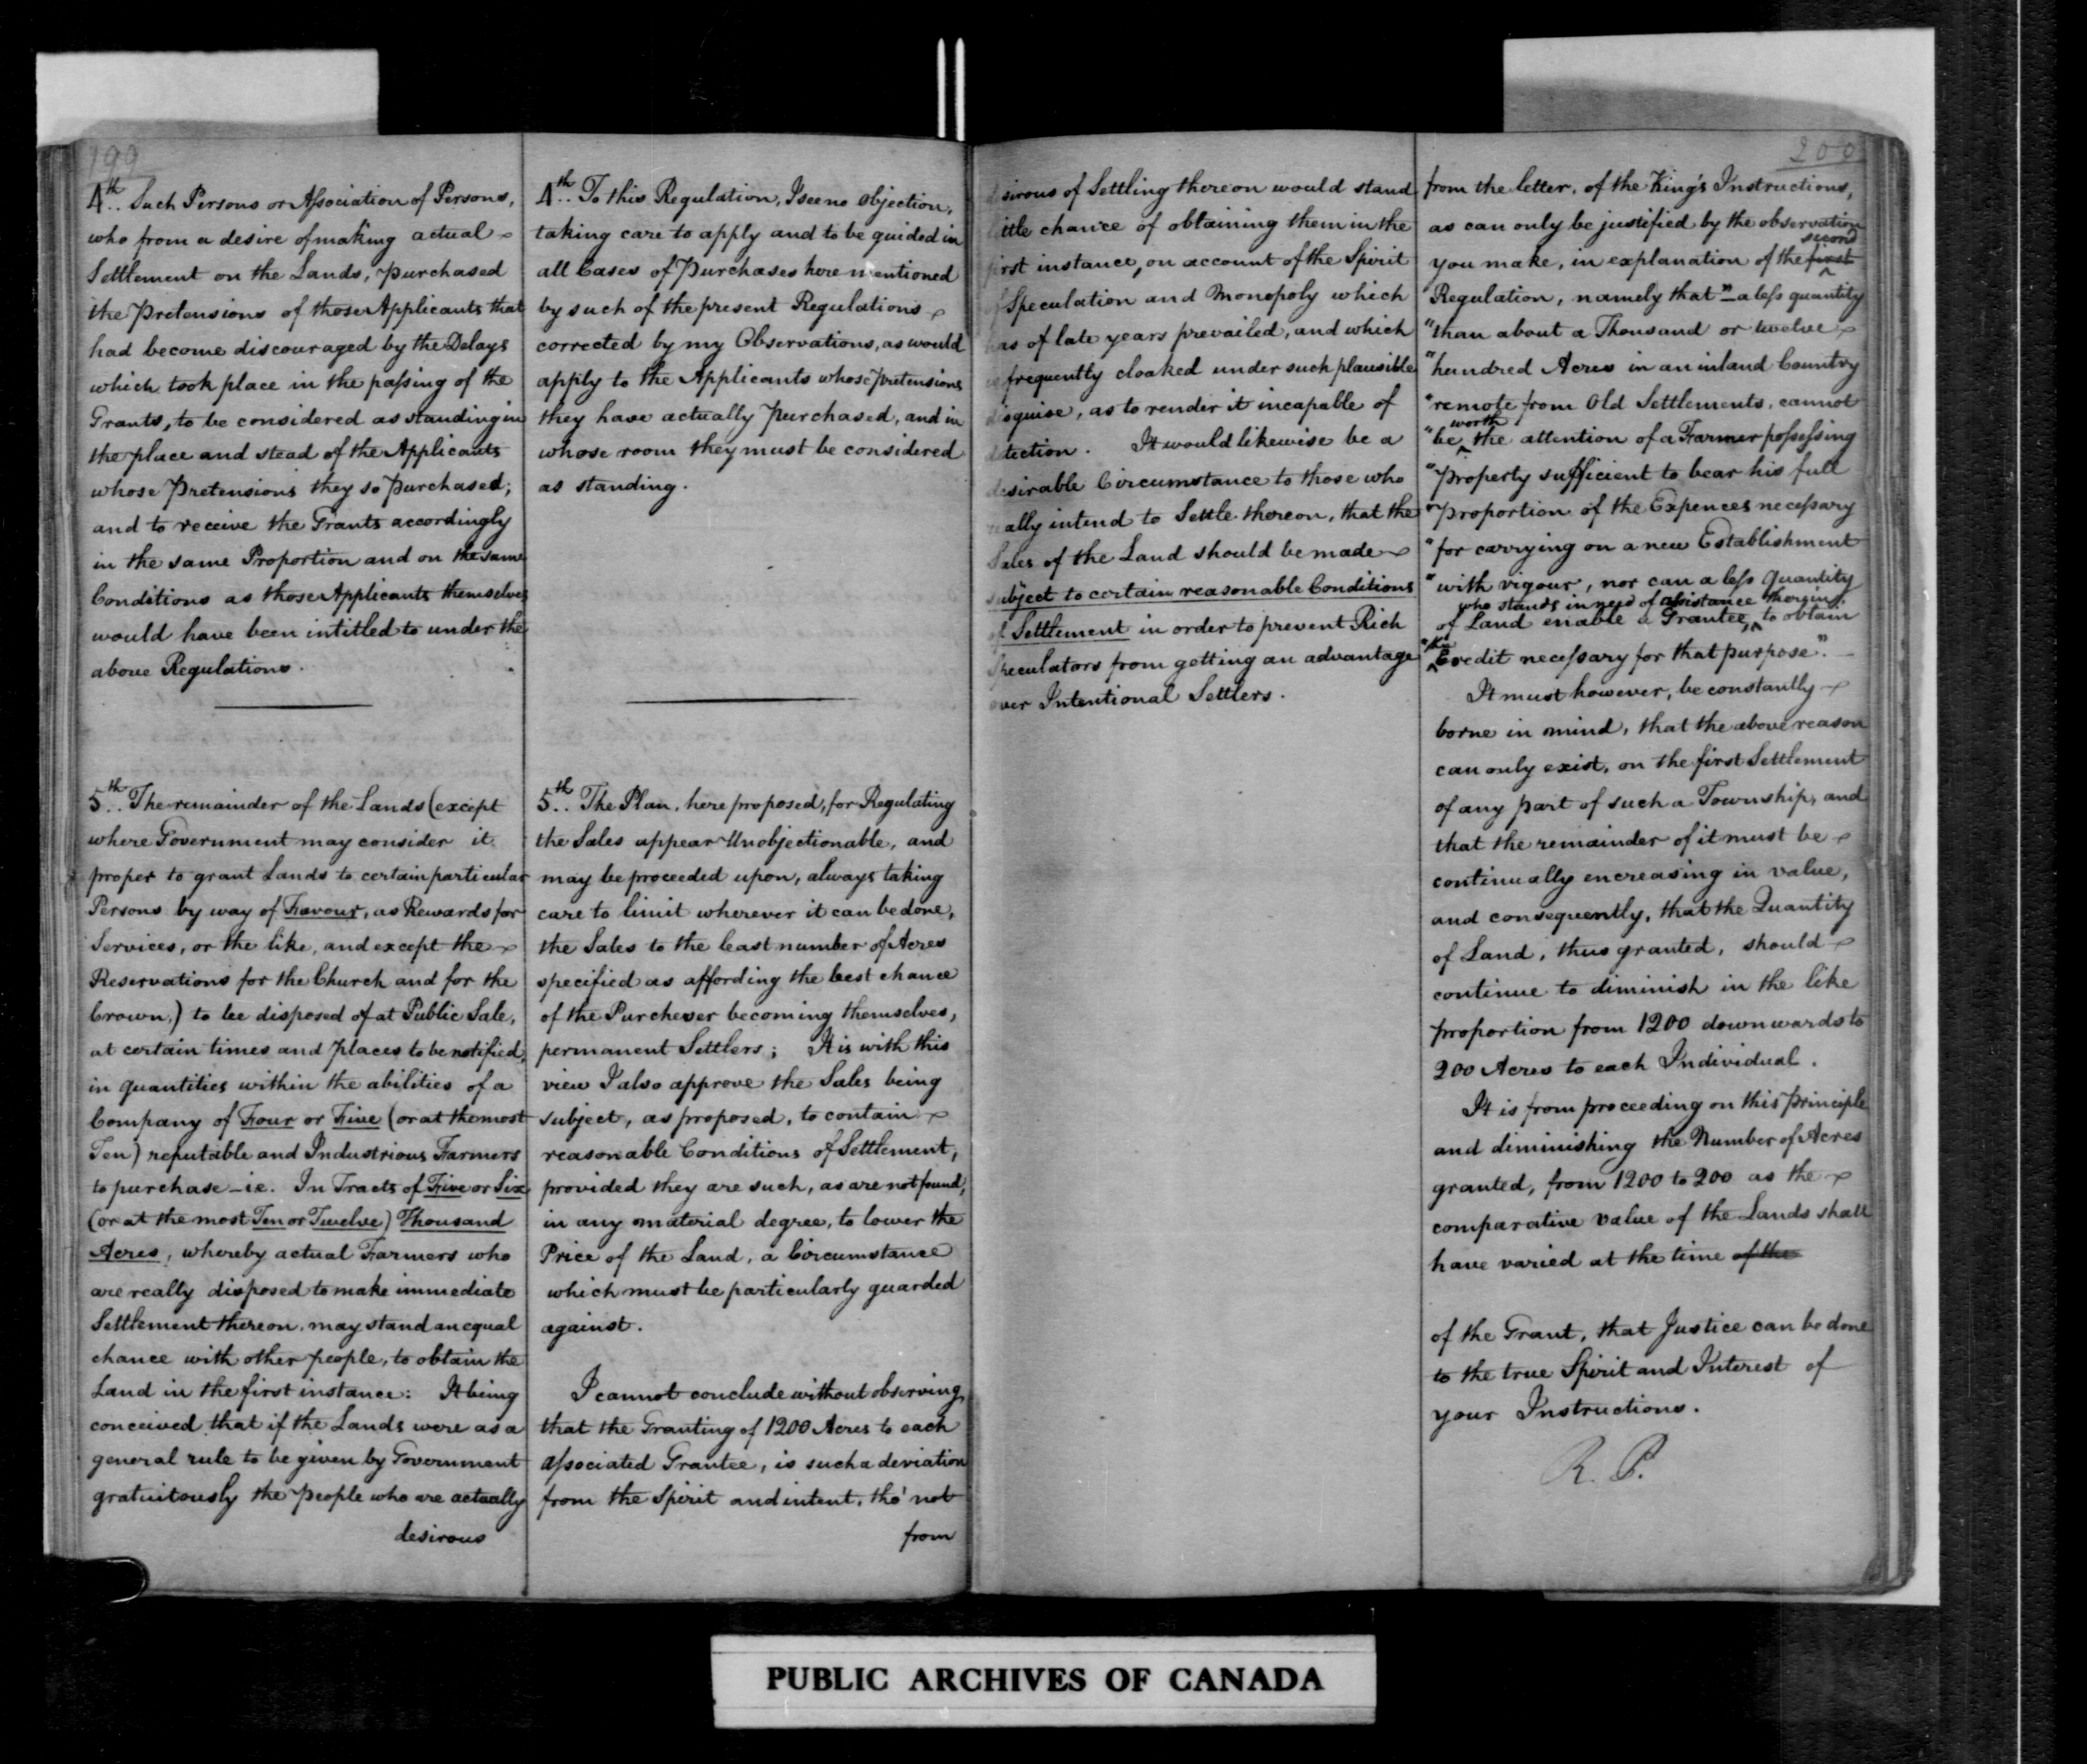 199
4th.. Such Persons or Association of Persons,
who from a desire of making actual
Settlement on the Lands, purchased
the Pretensions of those Applicants that
had become discouraged by the Delays
which took place in the passing of the
Grants, to be considered as standing in
the place and stead of the Applicants
whose Pretensions they so purchased;
and to receive the Grants accordingly
in the same Proportion and on the same
Conditions as those Applicants themselves
would have been intitled to under the
above Regulations.
5th.. The remainder of the Lands (except
where Government may consider it
proper to grant Lands to certain particular
Persons by way of Favour, as Rewards for
Services, or the like, and except the
Reservations for the Church and for the
Crown,) to be disposed of at Public Sale,
at certain times and places to be notified,
in quantities within the abilities of a
Company of Four or Five (or at the most
Ten) reputable and Industrious Farmers
to purchase – ie. In Tracts of Five or Six
(or at the most Ten or Twelve) Thousand
Acres, whereby actual Farmers who
are really disposed to make immediate
Settlement thereon, may stand an equal
chance with other people, to obtain the
Land in the first instance: It being
conceived that if the Lands were as a
general rule to be given by Government
gratuitously the people who are actually
desirous
4th.. To this Regulation, I see no objection,
taking care to apply and to be guided in
all Cases of Purchases here mentioned
by such of the present Regulations
corrected by my Observations, as would
apply to the Applicants whose pretensions
they have actually purchased, and in
whose room they must be considered
as standing.
5th.. The Plan, here proposed, for Regulating
the Sales appear Unobjectionable, and
may be proceeded upon, always taking
care to limit wherever it can be done,
the Sales to the least number of Acres
specified as affording the best chance
of the Purchaser becoming themselves,
permanent Settlers; It is with this
view I also approve the Sales being
subject, as proposed, to contain
reasonable Conditions of Settlement,
provided they are such, as are not found,
in any material degree, to lower the
Price of the Land, a Circumstance
which must be particularly guarded
against.
I cannot conclude without observing
that the Granting of 1200 Acres to each
associated Grantee, is such a deviation
from the Spirit and intent, tho' not
from
200
desirous of Settling thereon would stand
little chance of obtaining them in the
first instance, on account of the Spirit
of Speculation and Monopoly which
has of late years prevailed, and which
is frequently cloaked under such plausible
disguise, as to render it incapable of
detection. It would likewise be a
desirable Circumstance to those who
really intend to Settle thereon, that the
Sales of the Land should be made
subject to certain reasonable Conditions
of Settlement in order to prevent Rich
Speculators from getting an advantage
over Intentional Settlers.
from the letter, of the King's Instructions,
as can only be justified by the observation
second
you make, in explanation of the first
Regulation, namely that "a less quantity
"than about a Thousand or twelve
"hundred Acres in an inland Country
"remote from Old Settlements, cannot
worth
"be the attention of a Farmer possessing
"property sufficient to bear his full
"proportion of the Expences necessary
"for carrying on a new Establishment
"with vigour, nor can a less Quantity
who stands in need of assistance therein,
of Land enable a Grantee, to obtain
"the Credit necessary for that purpose".
It must however, be constantly
borne in mind, that the above reason
can only exist, on the first Settlement
of any part of such a Township, and
that the remainder of it must be
continually encreasing in value,
and consequently, that the Quantity
of Land, thus granted, should
continue to diminish in the like
proportion from 1200 downwards to
200 Acres to each Individual.
It is from proceeding on this principle
and diminishing the Number of Acres
granted, from 1200 to 200 as the
comparative value of the Lands shall
have varied at the time of the
of the Grant, that Justice can be done
to the true Spirit and Interest of
your Instructions.
R. P.
PUBLIC ARCHIVES OF CANADA